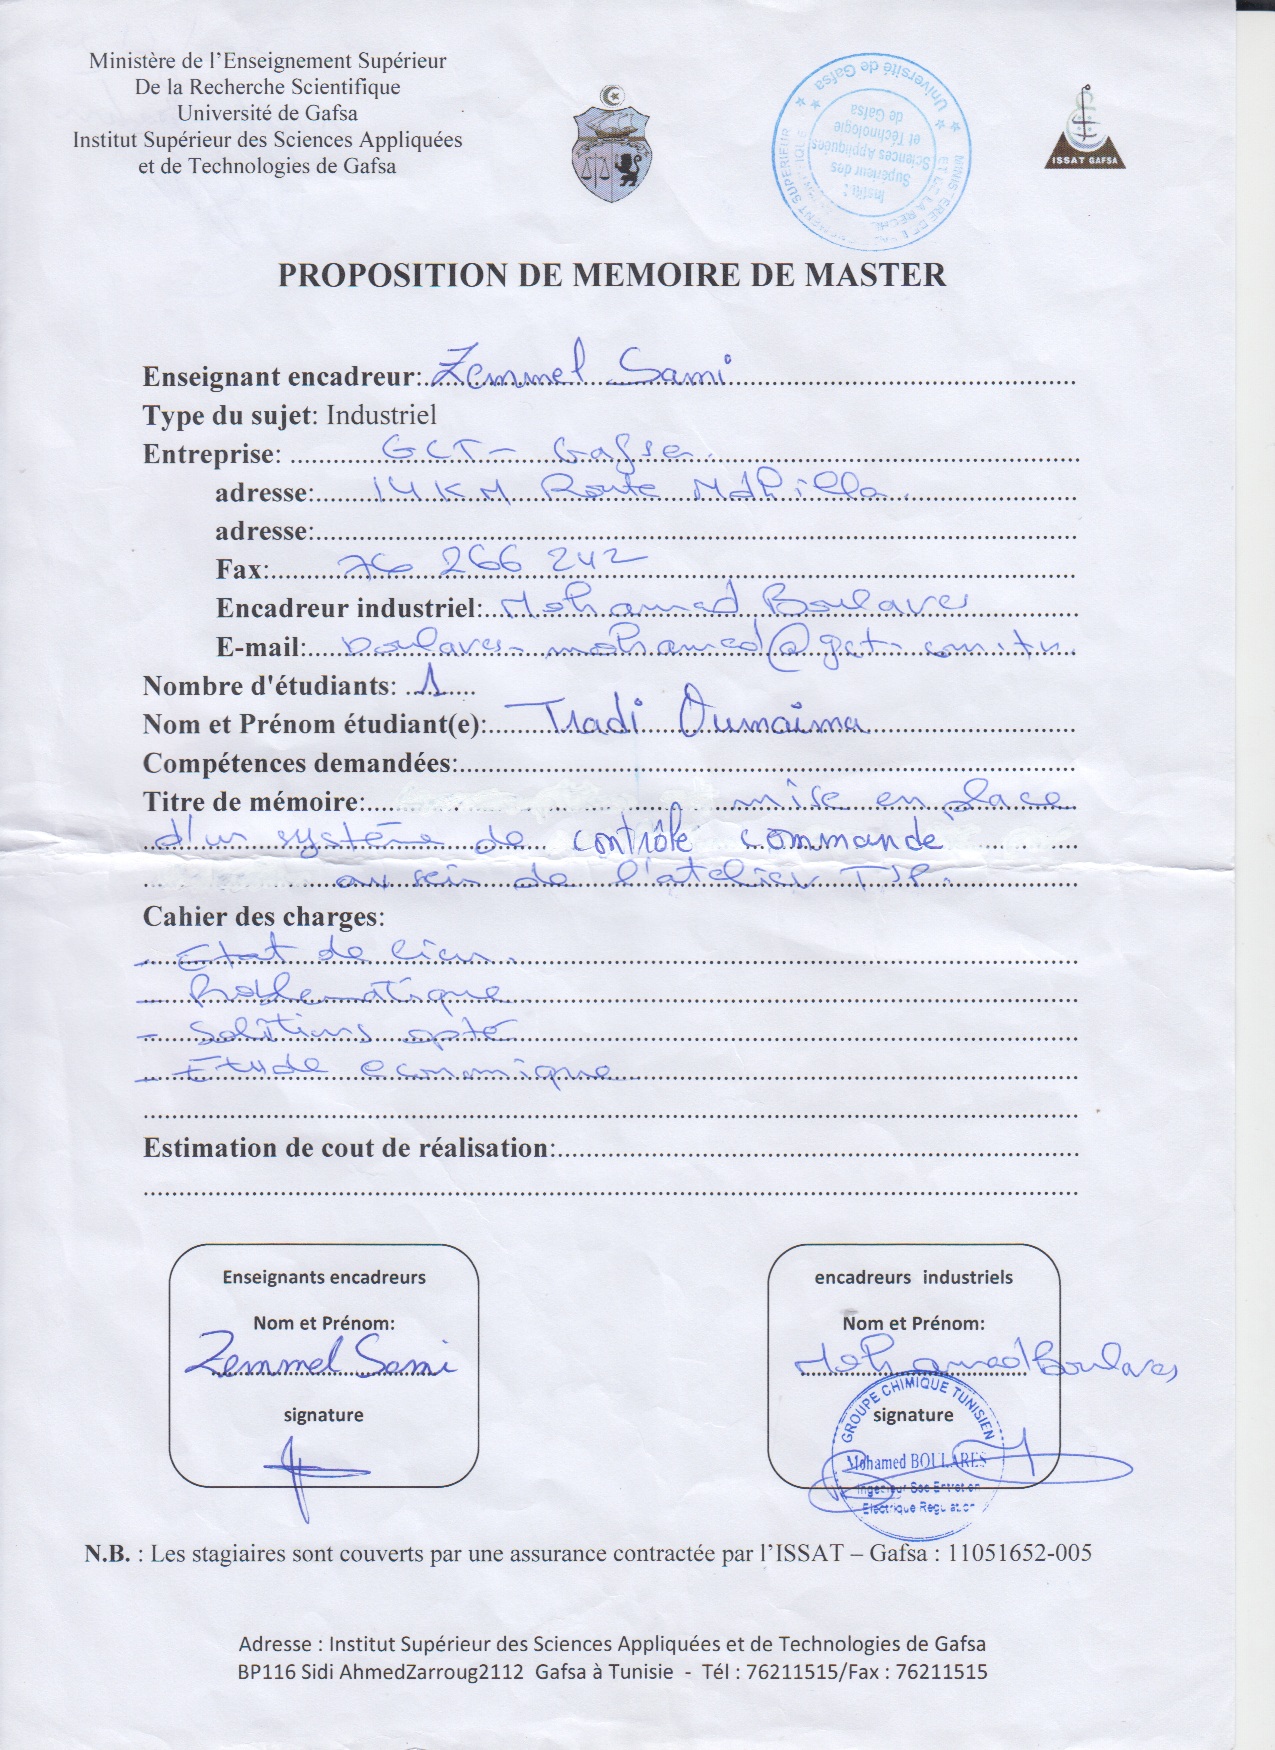 Ministère de l'Enseignement Supérieur
De la Recherche Scientifique
Université de Gafsa
Institut Supérieur des Sciences Appliquées
et de Technologies de Gafsa
Université de Gafsa
Institut
Supérieur des
Sciences Appliquées
et Téchnologie
de Gafsa
ISSAT GAFSA
PROPOSITION DE MEMOIRE DE MASTER
Enseignant encadreur: Zemmel Sami
Type du sujet: Industriel
Entreprise: GCT - Gafsa
adresse: 14 KM Route Mdhilla
adresse:
Fax: 76 266 242
Encadreur industriel: Mohamed Boulares
E-mail: boulares-mohamed@gct.com.tn
Nombre d'étudiants: 1
Nom et Prénom étudiant(e): Tradi Oumaima
Compétences demandées:
Titre de mémoire: mise en place
d'un système de contrôle commande
au sein de l'atelier TSP.
Cahier des charges:
- Etat de lieu
- Problematique
- Solutions opté
- Etude economique
Estimation de cout de réalisation:
Enseignants encadreurs
Nom et Prénom:
Zemmel Sami
signature
encadreurs industriels
Nom et Prénom:
Mohamed Boulares
GROUPE CHIMIQUE TUNISIEN
signature
Mohamed BOULARES
N.B. : Les stagiaires sont couverts par une assurance contractée par l'ISSAT – Gafsa : 11051652-005
Adresse : Institut Supérieur des Sciences Appliquées et de Technologies de Gafsa
BP116 Sidi AhmedZarroug2112 Gafsa à Tunisie - Tél : 76211515/Fax : 76211515